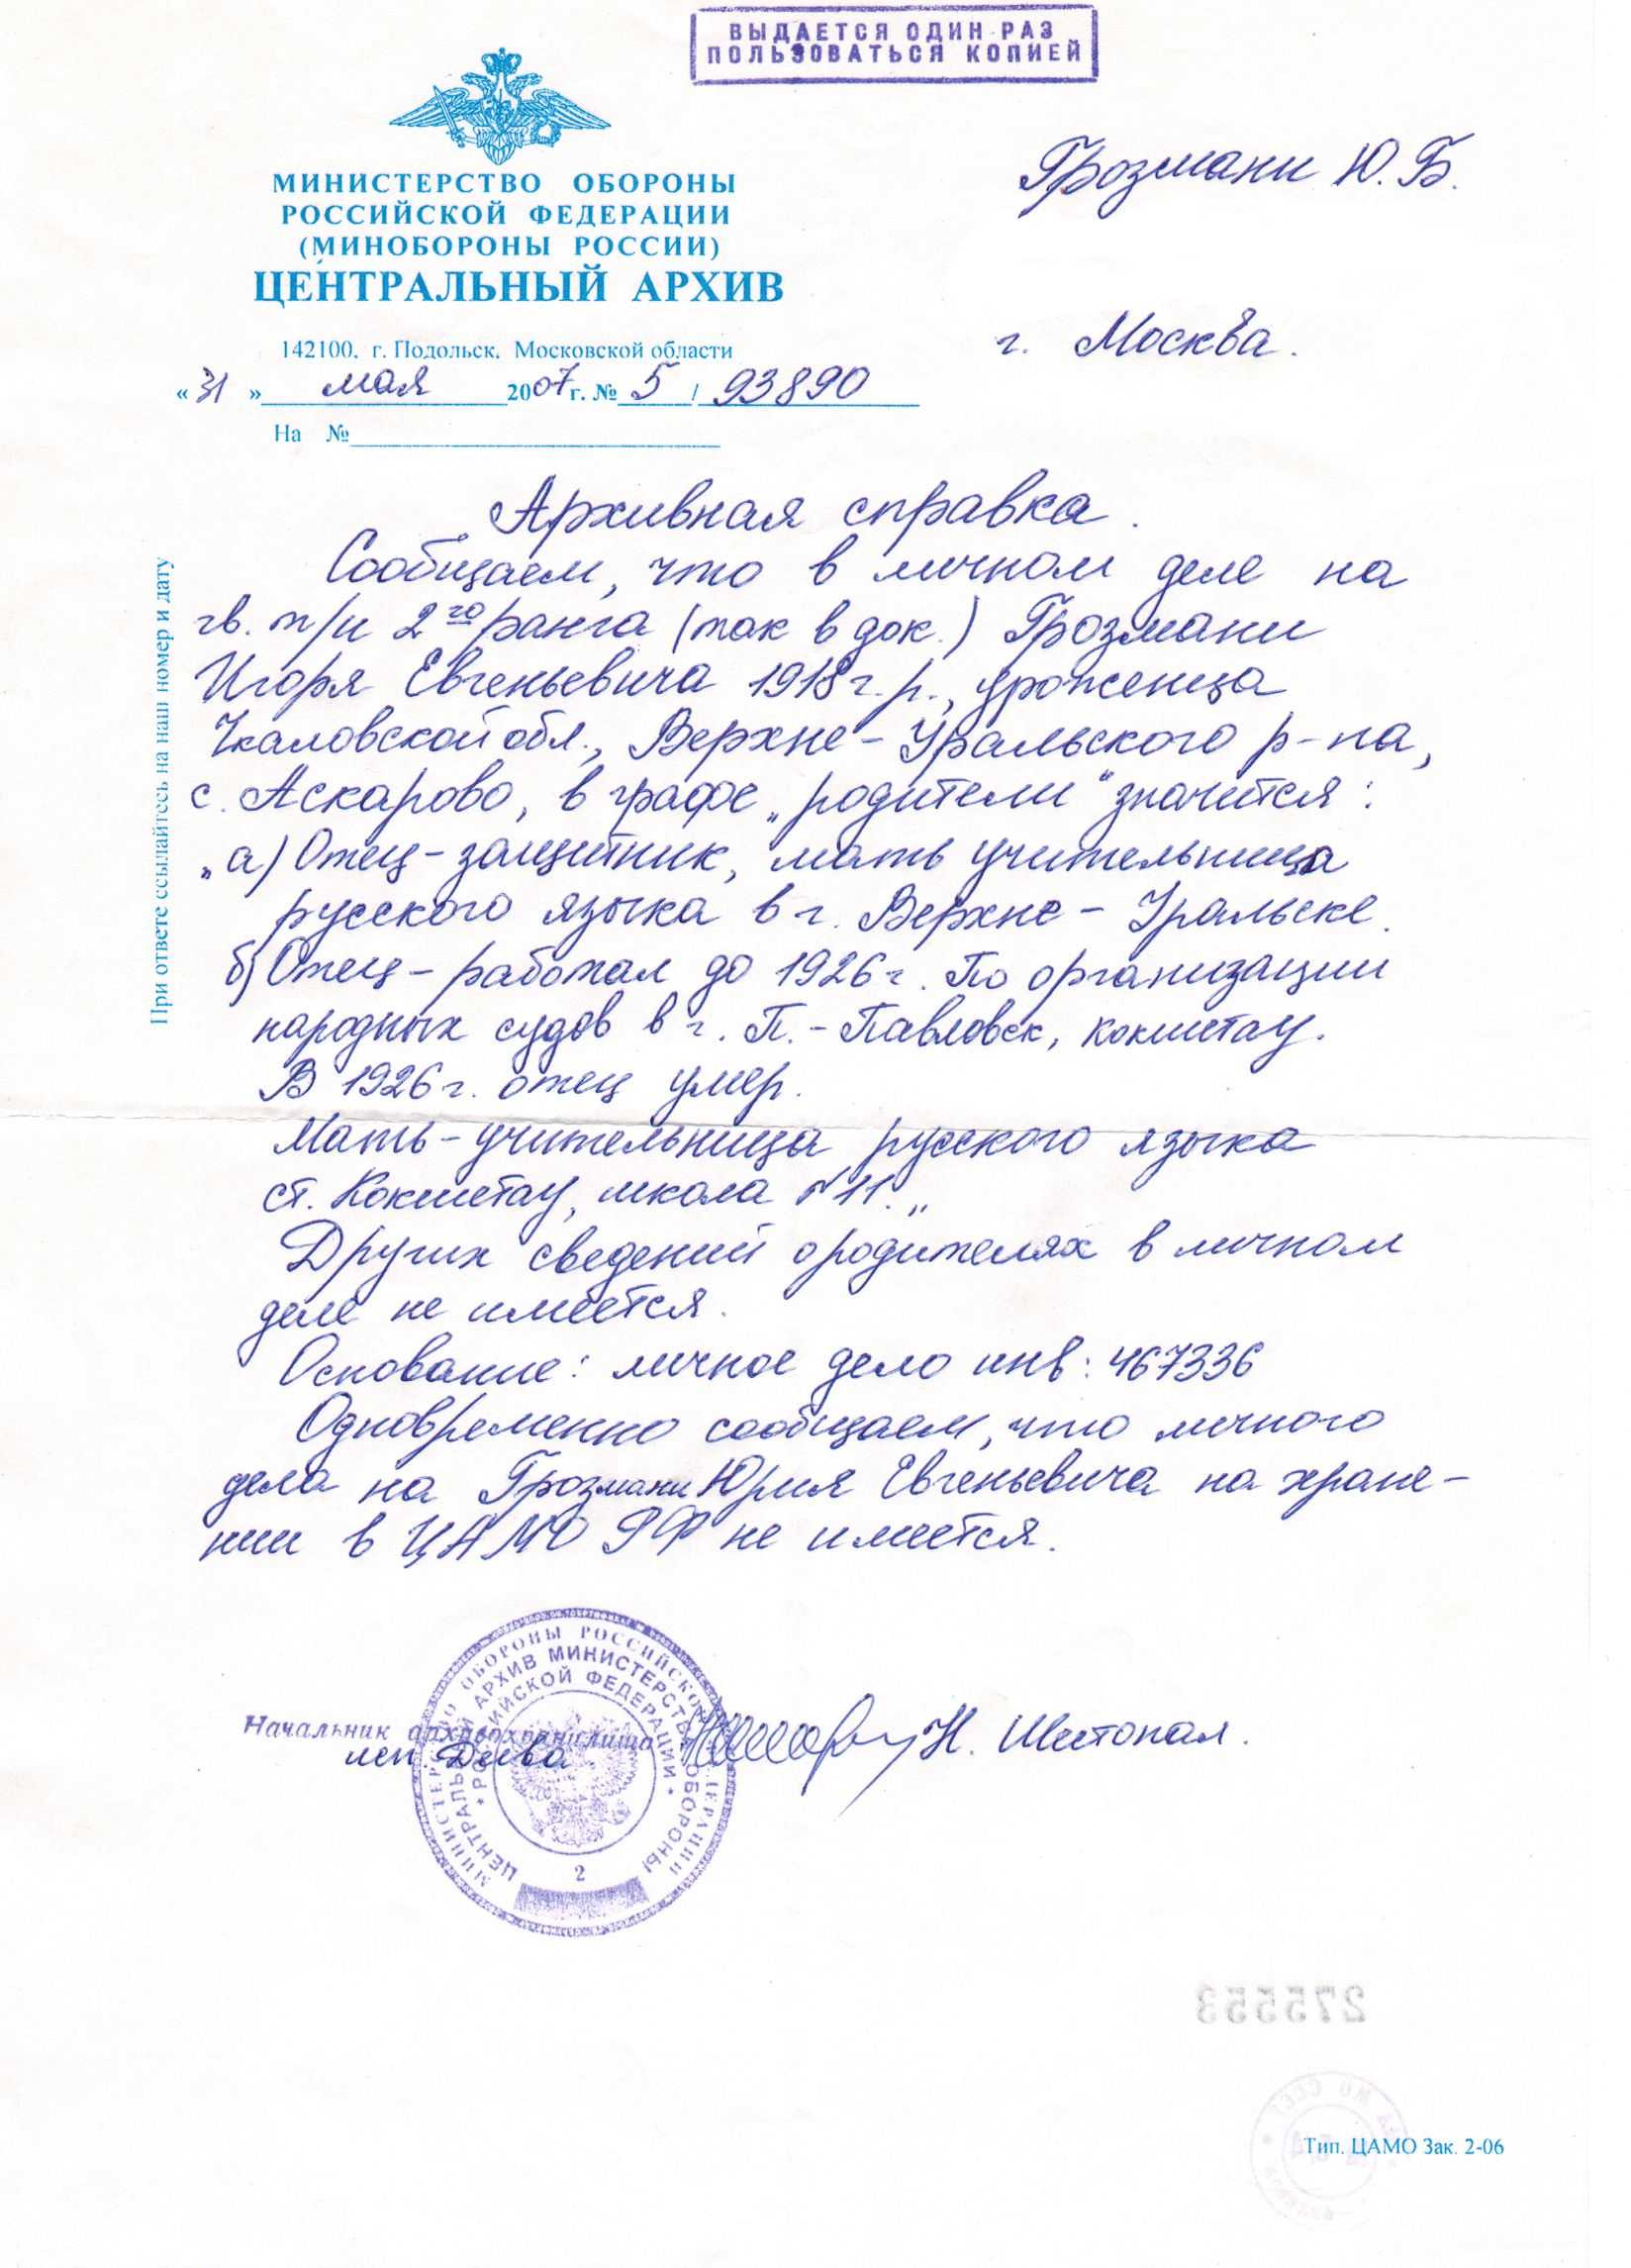 ВЫДАЕТСЯ ОДИН РАЗ
ПОЛЬЗОВАТЬСЯ КОПИЕЙ
МИНИСТЕРСТВО ОБОРОНЫ
РОССИЙСКОЙ ФЕДЕРАЦИИ
(МИНОБОРОНЫ РОССИИ)
ЦЕНТРАЛЬНЫЙ АРХИВ
142100, г. Подольск, Московской области
«31» мая 2007 г. № 5 / 93890
На №
Грозмани Ю. Б.
г. Москва.
При ответе ссылайтесь на наш номер и дату
Архивная справка.
Сообщаем, что в личном деле на
гв. т/и 2го ранга (так в док.) Грозмани
Игоря Евгеньевича 1918 г. р., уроженца
Чкаловской обл., Верхне-Уральского р-на,
с. Аскарово, в графе „родители" значится:
„а) Отец-защитник, мать учительница
русского языка в г. Верхне-Уральске.
б) Отец-работал до 1926 г. По организации
народных судов в г. П.-Павловск, Кокшетау.
В 1926 г. отец умер.
Мать-учительница русского языка
ст. Кокшетау, школа №11.„
Других сведений о родителях в личном
деле не имеется.
Основание: личное дело инв: 467336
Одновременно сообщаем, что личного
дела на Грозмани Юрия Евгеньевича на хране-
нии в ЦАМО РФ не имеется.
Начальник архивохранилища Н. Шитопал.
исп.
МИНИСТЕРСТВО ОБОРОНЫ РОССИЙСКОЙ ФЕДЕРАЦИИ
ЦЕНТРАЛЬНЫЙ АРХИВ МИНИСТЕРСТВА ОБОРОНЫ
* РОССИЙСКОЙ ФЕДЕРАЦИИ *
2
275553
Тип. ЦАМО Зак. 2-06